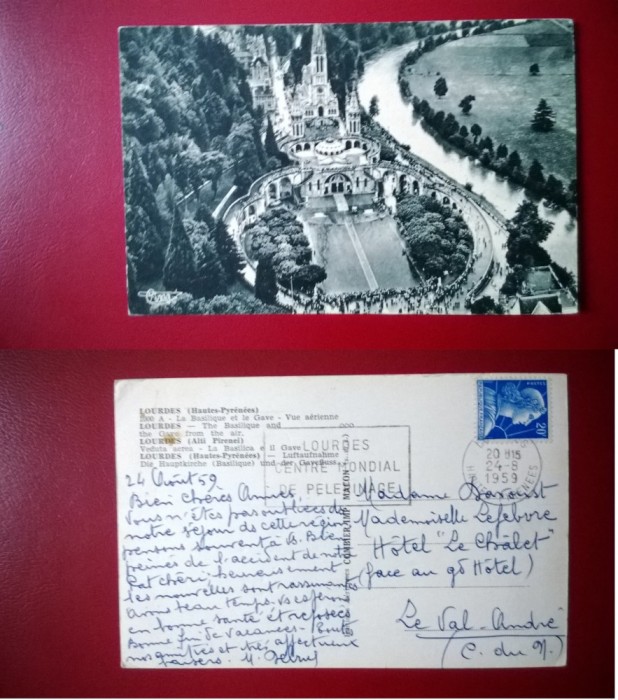 LOURDES (Hautes-Pyrénées)
A - La Basilique et le Gave - Vue aérienne
LOURDES — The Basilique and
the Gave from the air.
LOURDES (Alti Pirenei)
Veduta aerea - La Basilica e il Gave
LOURDES (Hautes-Pyrénées) — Luftaufnahme
Die Hauptkirche (Basilique) und der Gavefluss
LOURDES
CENTRE MONDIAL
DE PELERINAGE
POSTES
20F
20 H15
24-8
1959
COMBIER IMP. MACON
24 Août 59
Bien chères Amies,
Vous n'êtes pas oubliées de
notre séjour de cette région
pensons souvent à
peines de l'accident de notre
chéri, heureusement
les nouvelles sont rassurantes
beau temps. Vs espérons
en bonne santé et reposées
Bonne fin de vacances. Toutes
nos amitiés et très affectueux
baisers. M.
Madame
Mademoiselle Lefebvre
Hôtel "Le Châlet"
(face au gd Hôtel)
Le Val-André
(C. du N.)